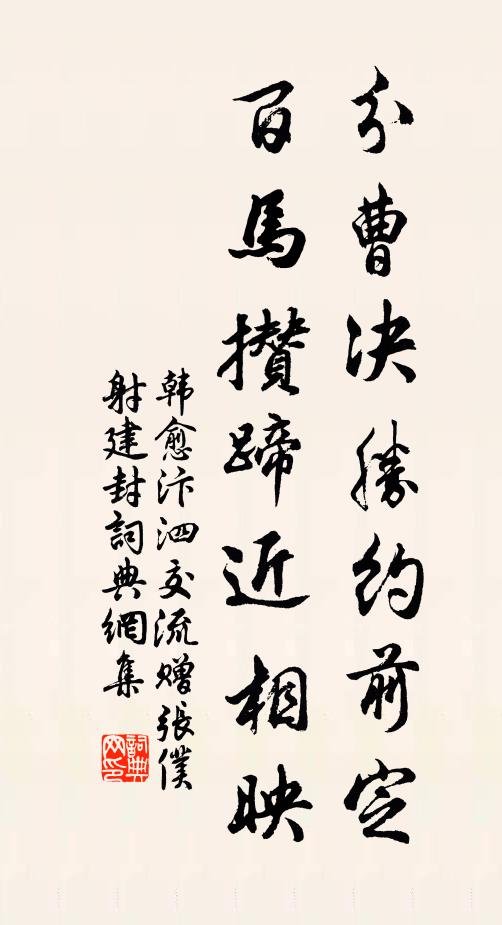 分曹决勝約前定
百馬攢蹄近相映
韩愈汴泗交流赠張僕
射建封詞典網集
詞典
网印